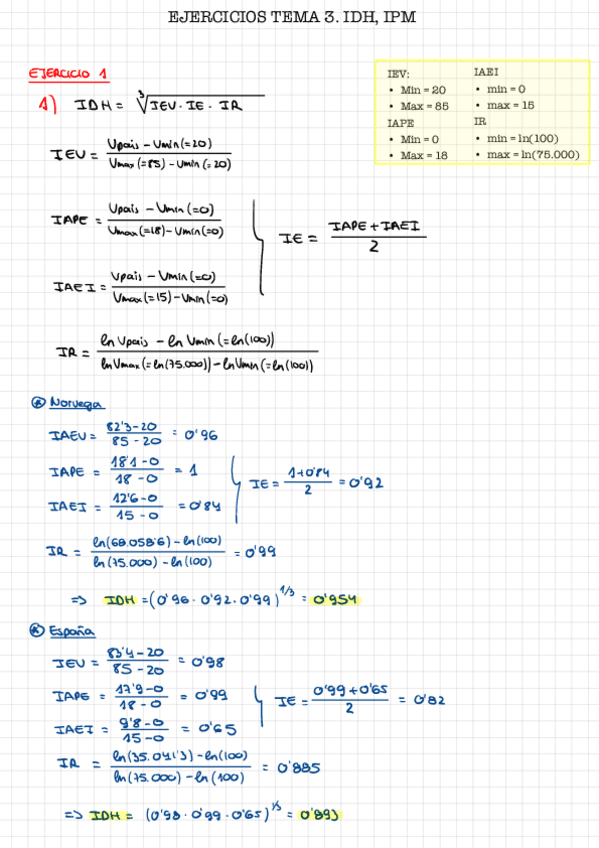 EJERCICIOS TEMA 3. IDH, IPM
EJERCICIO 1
1) IDH = ∛(IEV · IE · IR)
IEV:
• Min = 20
• Max = 85
IAPE
• Min = 0
• Max = 18
IAEI
• min = 0
• max = 15
IR
• min = ln(100)
• max = ln(75.000)
IEV = (Vpais - Vmin (=20)) / (Vmax (=85) - Vmin (=20))
IAPE = (Vpais - Vmin (=0)) / (Vmax (=18) - Vmin (=0))
IAEI = (Vpais - Vmin (=0)) / (Vmax (=15) - Vmin (=0))
IE = (IAPE + IAEI) / 2
IR = (ln Vpais - ln Vmin (=ln(100))) / (ln Vmax (=ln(75.000)) - ln Vmin (=ln(100)))
Noruega
IAEV = (82'3 - 20) / (85 - 20) = 0'96
IAPE = (18'1 - 0) / (18 - 0) = 1
IAEI = (12'6 - 0) / (15 - 0) = 0'84
IE = (1 + 0'84) / 2 = 0'92
IR = (ln(68.058'6) - ln(100)) / (ln(75.000) - ln(100)) = 0'99
=> IDH = (0'96 · 0'92 · 0'99)^1/3 = 0'954
España
IEV = (83'4 - 20) / (85 - 20) = 0'98
IAPE = (17'9 - 0) / (18 - 0) = 0'99
IAEI = (9'8 - 0) / (15 - 0) = 0'65
IE = (0'99 + 0'65) / 2 = 0'82
IR = (ln(35.041'3) - ln(100)) / (ln(75.000) - ln(100)) = 0'885
=> IDH = (0'98 · 0'99 · 0'65)^1/3 = 0'893